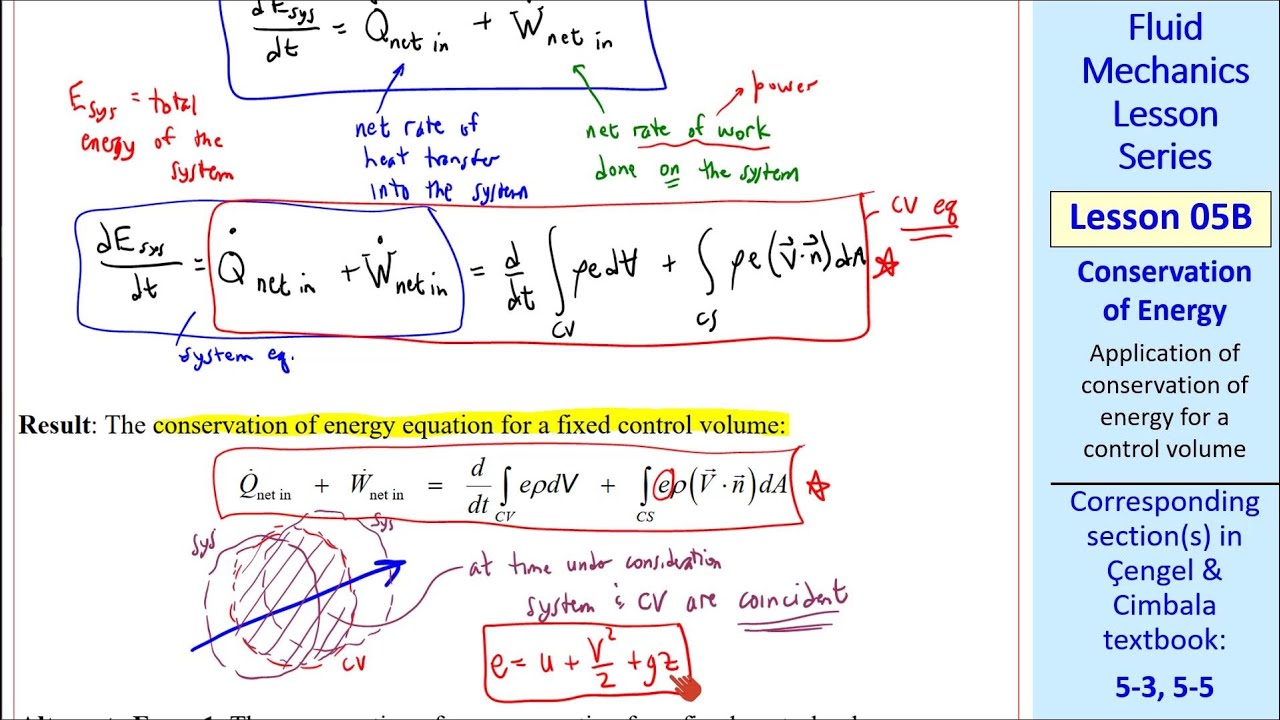 dE_sys/dt = Q̇_net in + Ẇ_net in
E_sys = total
energy of the
system
net rate of
heat transfer
into the system
power
net rate of work
done on the system
dE_sys/dt = Q̇_net in + Ẇ_net in = d/dt ∫_CV ρe dV + ∫_CS ρe(V⃗·n⃗)dA
CV eq
system eq.
Result: The conservation of energy equation for a fixed control volume:
Q̇_net in + Ẇ_net in = d/dt ∫_CV eρdV + ∫_CS eρ(V⃗·n⃗)dA
sys
sys
CV
at time under consideration
system & CV are coincident
e = u + V²/2 + gz
Fluid
Mechanics
Lesson
Series
Lesson 05B
Conservation
of Energy
Application of
conservation of
energy for a
control volume
Corresponding
section(s) in
Çengel &
Cimbala
textbook:
5-3, 5-5